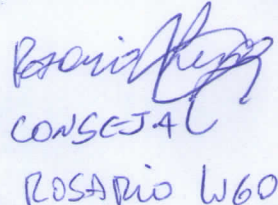 Rosario
CONSEJAL
ROSARIO LUGO